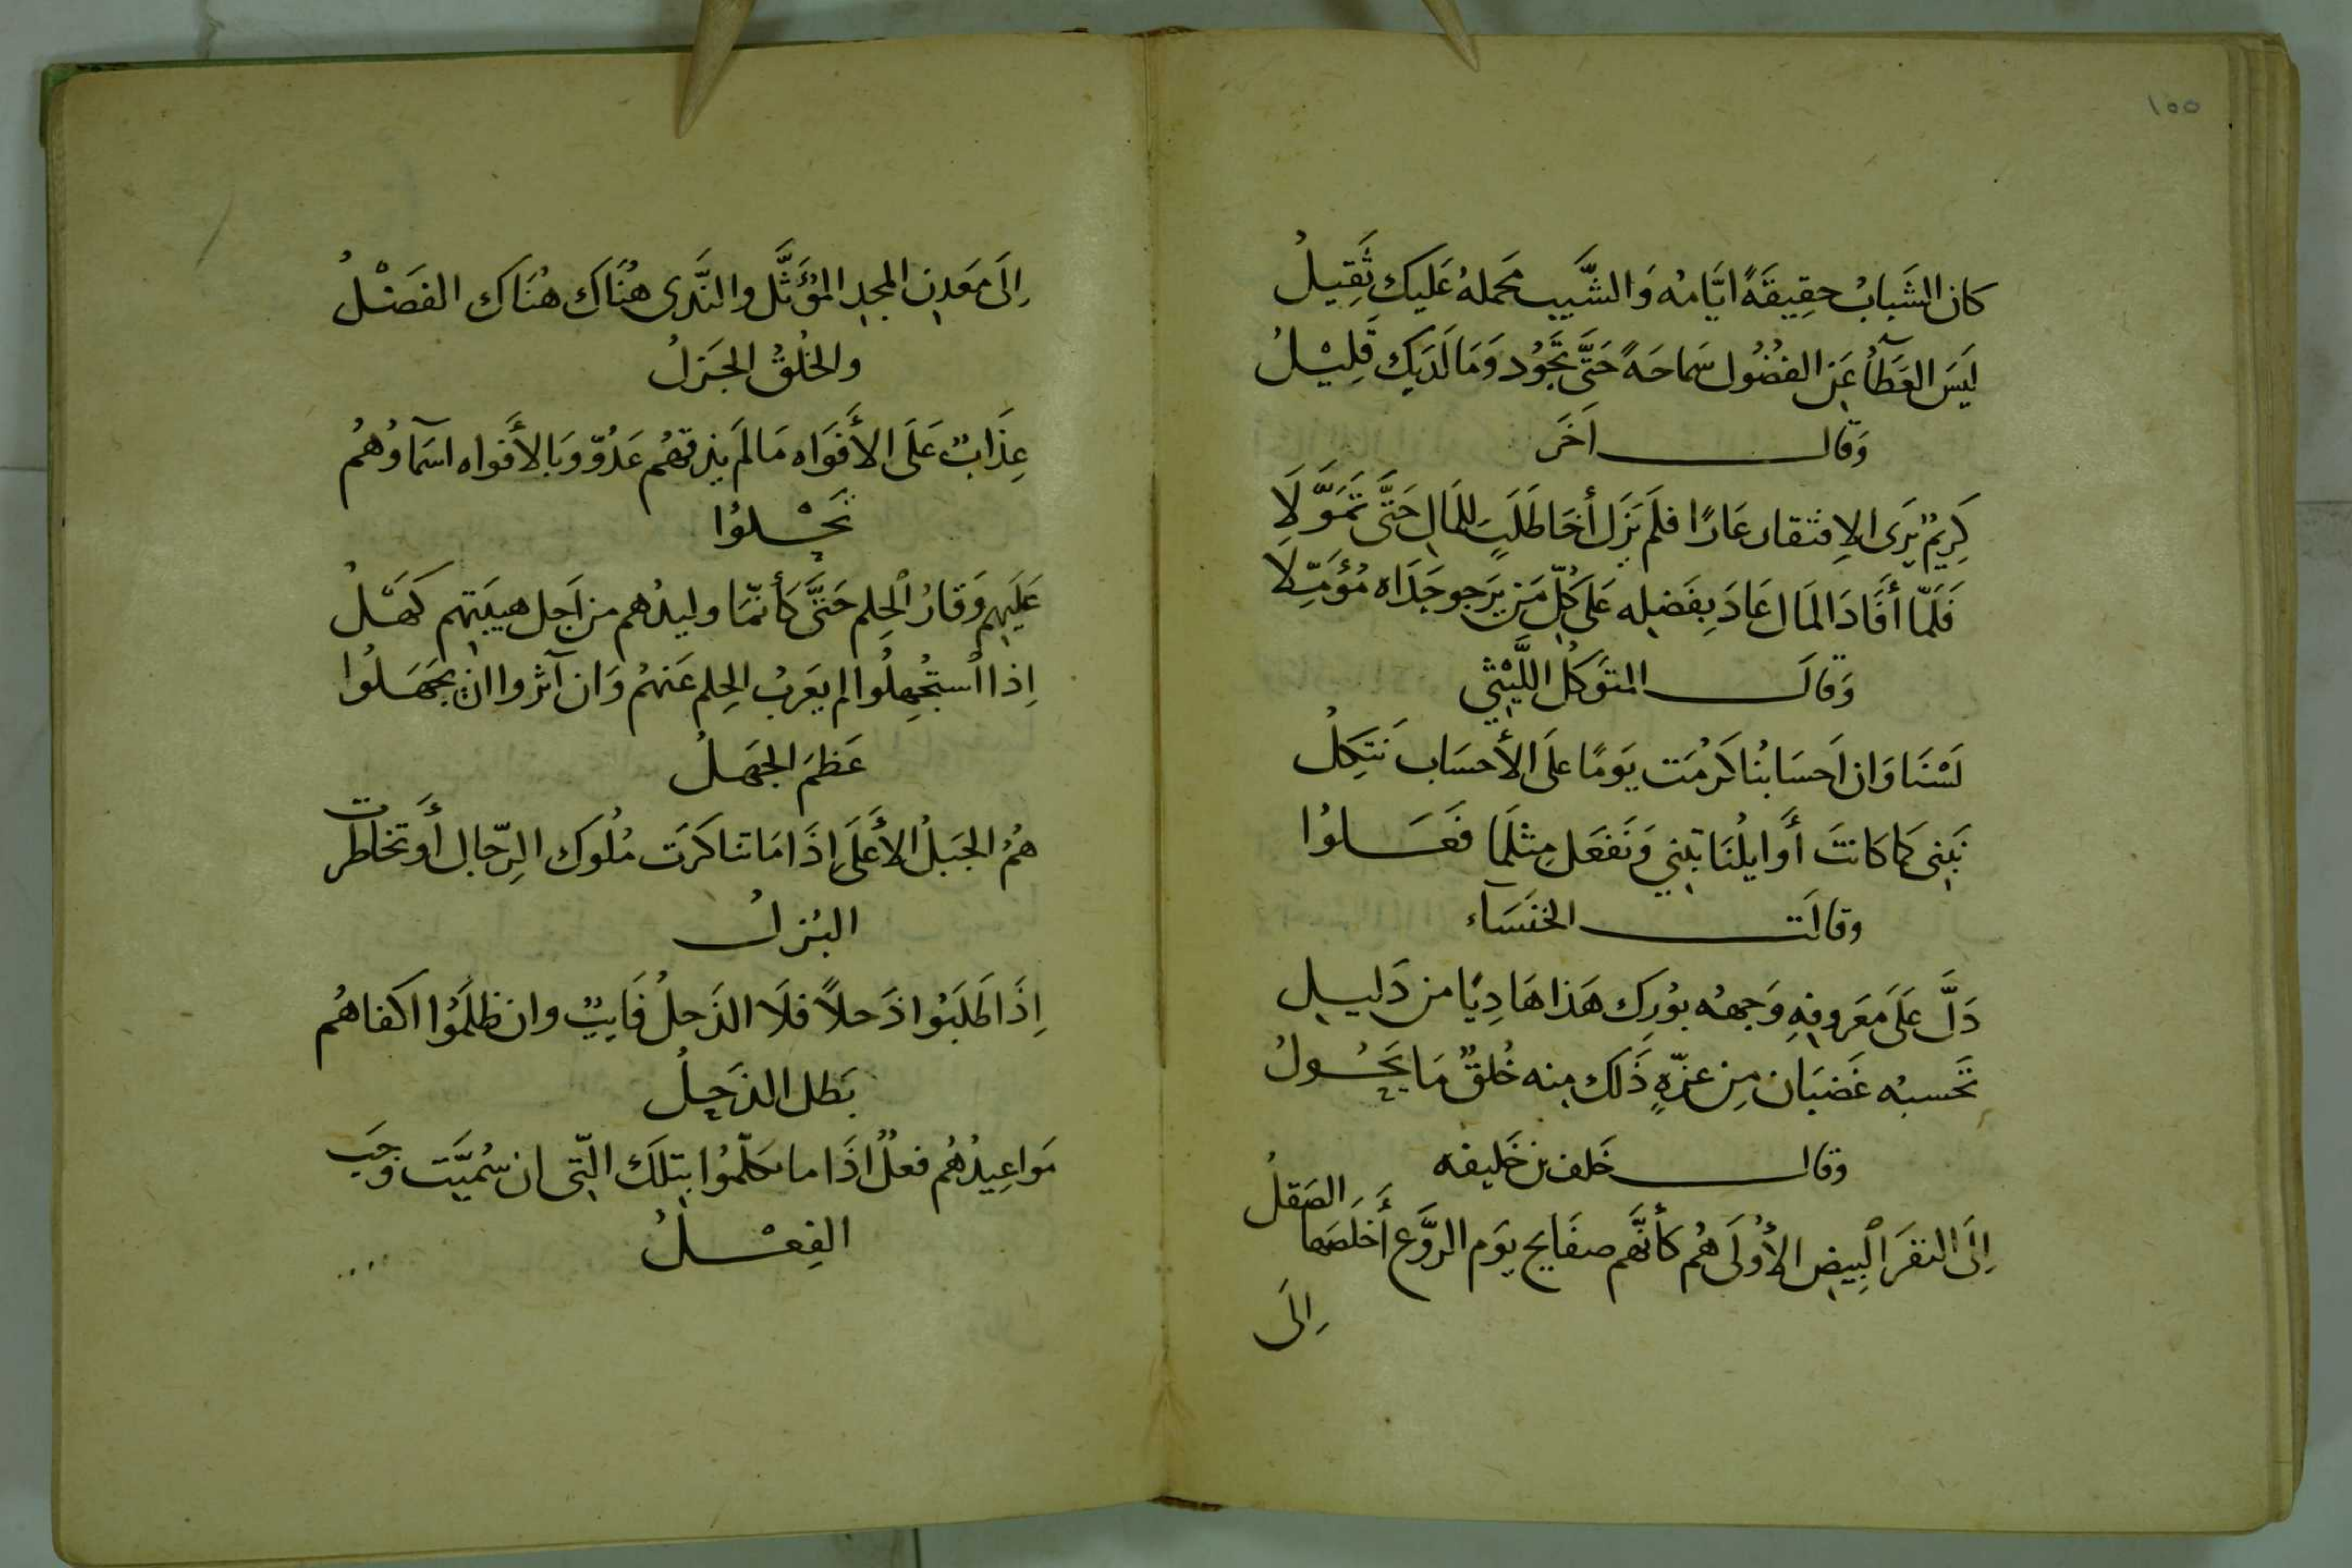 ١٥٥
كان الشَبابُ حقِيقَةً ايَّامهُ وَالشَّيب مَحملهُ عَليكِ ثَقِيلُ
لَيسَ العَطَآُ عَنِ الفضُولِ سَماحَةً حَتَّى تَجُود وَمَا لَديكِ قَلِيْلُ
وَقال اَخَر
كَرِيمٌ يَرَى الاِفتقار عَارًا فلَم يَزَل أخَا طَلَبٍ لِلمَالِ حَتَّى تَمَوَّلَا
فَلَمّا أفَادَ المَال عَادَ بِفَضلِه عَلى كلِّ مَن يَرجو جَدَاه مُؤَمِّلَا
وَقالَ المتَوكلُ اللَّيْثيّ
لَسْنَا وَان اَحسَابنُا كَرُمَت يَومًا علَى الأحسَاب نَتَكِلُ
نَبنِي كمَا كانَت أوَايلُنَا تَبنِي وَنَفعَل مِثلَما فَعَلوُا
وقالَت الخنَسَآء
دَلَّ عَلَى مَعرُوفِهِ وَجههُ بوُرِكَ هَذا هَادِيًا من دَليلِ
تَحسبُه غَضبَان مِن عزّهِ ذَلك مِنه خُلقٌ مَا يَحُولُ
وقال خَلف بن خَليفه
اِلَى النفَر البِيضِ الأُولَى هُم كأَنَّهم صفَايح يوَم الرَّوع أَخلَصَها الصَقلُ
اِلَى
اِلَى مَعَدِن المجدِ المُؤَثَّلِ والنَّدَى هنَاكَ هنَاكَ الفَضْلُ
والخلُقُ الجَزلُ
عِذَابٌ عَلَى الأَفوَاه مَا لَم يذقهُم عَدُوّ وَبالأَفواه اسَماوُهُم
تَحْلوُا
عَلَيهِم وَقَارُ الحِلم حَتَّى كَأنّمَا وليدُهم من اَجل هيبَتِهِم كَهَلُ
اِذا اُستُجهِلُوا لم يعَربُ الحِلم عَنهُم وَان آثروا ان يَجهَلوُا
عَظمَ الجَهلُ
همُ الجَبَلُ الأَعلَى اِذَا مَا تناكَرَت مُلُوك الرِّجال أَو تخاطَرت
البُزلُ
اِذَا طَلَبَوُا ذَحلاً فلَا الذَحلُ فَايتٌ وان ظلَمَوُا اكفاهُم
بَطل الذَحلُ
مَواعِيدُهُم فعلٌ اذَا ما تكلّموُا بتِلكَ الّتِى ان سُميَّت وَجَب
الفِعْلُ